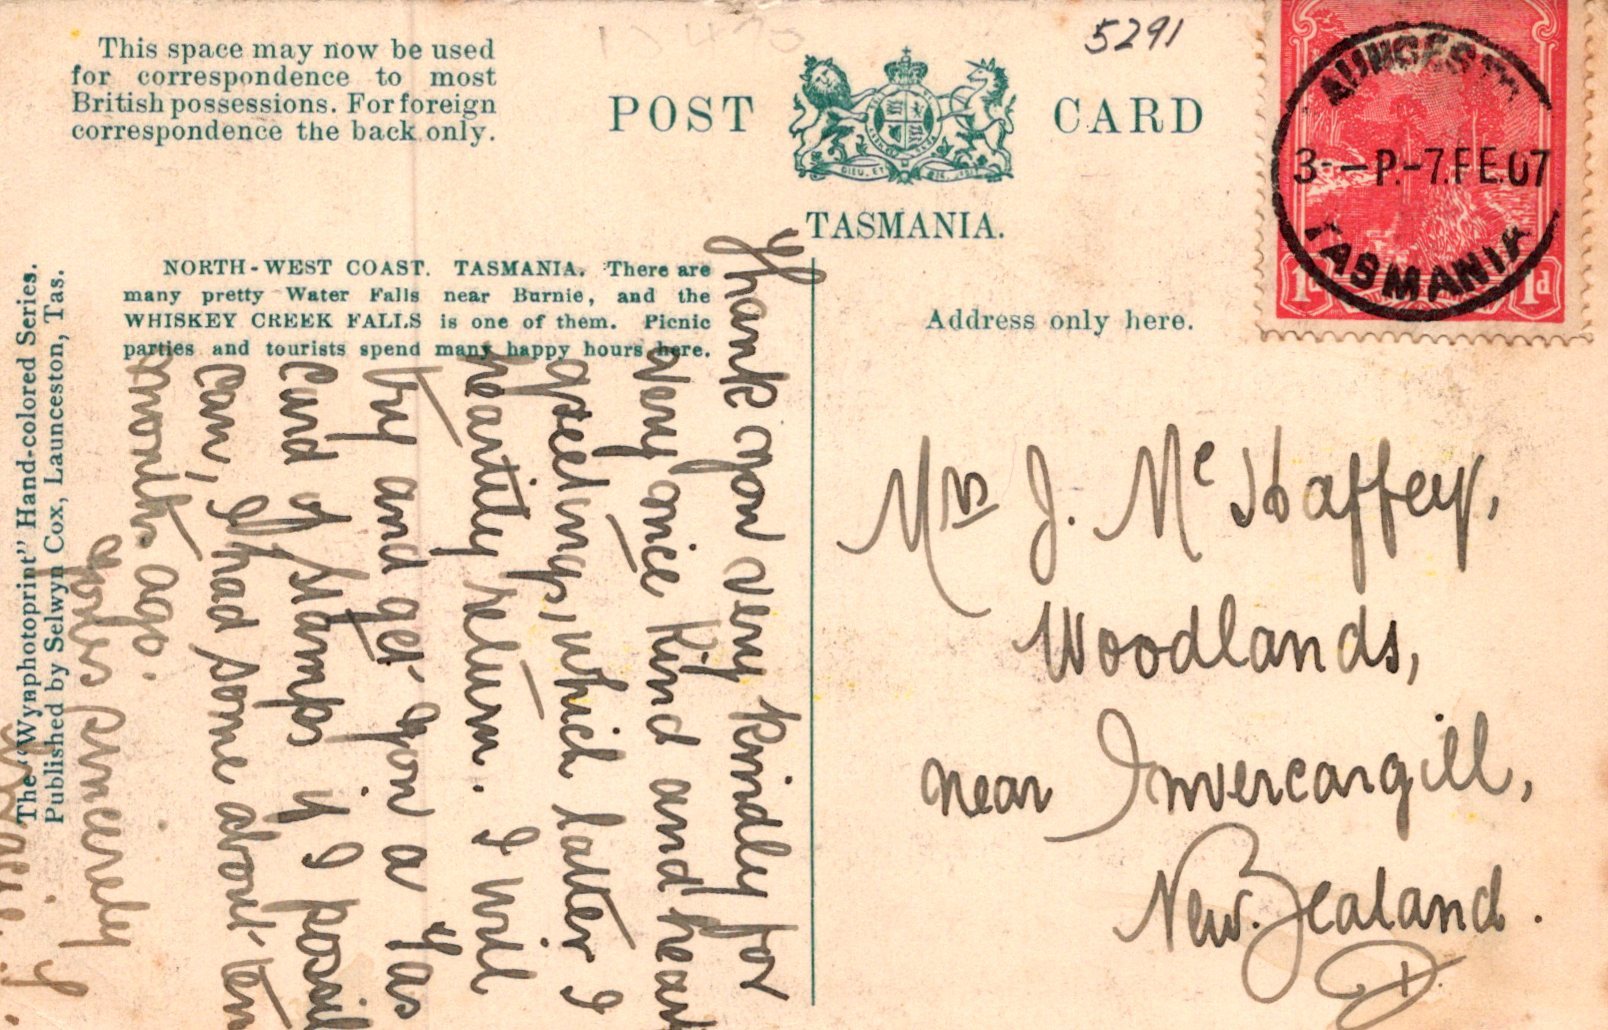 This space may now be used
for correspondence to most
British possessions. For foreign
correspondence the back only.
POST CARD
5291
DIEU ET MON DROIT
TASMANIA.
3-—P.-7.FE.07
TASMANIA
1d 1d
NORTH-WEST COAST. TASMANIA. There are
many pretty Water Falls near Burnie, and the
WHISKEY CREEK FALLS is one of them. Picnic
parties and tourists spend many happy hours here.
Address only here.
The "Wynphotoprint" Hand-colored Series.
Published by Selwyn Cox, Launceston, Tas.
Thank you very kindly for
very nice kind and heart
greetings, which latter I
heartily return. I will
try and get you a Tas
card of stamps if I possib
can, I had some about ten
months ago.
Yours sincerely
Mrs J. McHaffey,
Woodlands,
near Invercargill,
New Zealand.